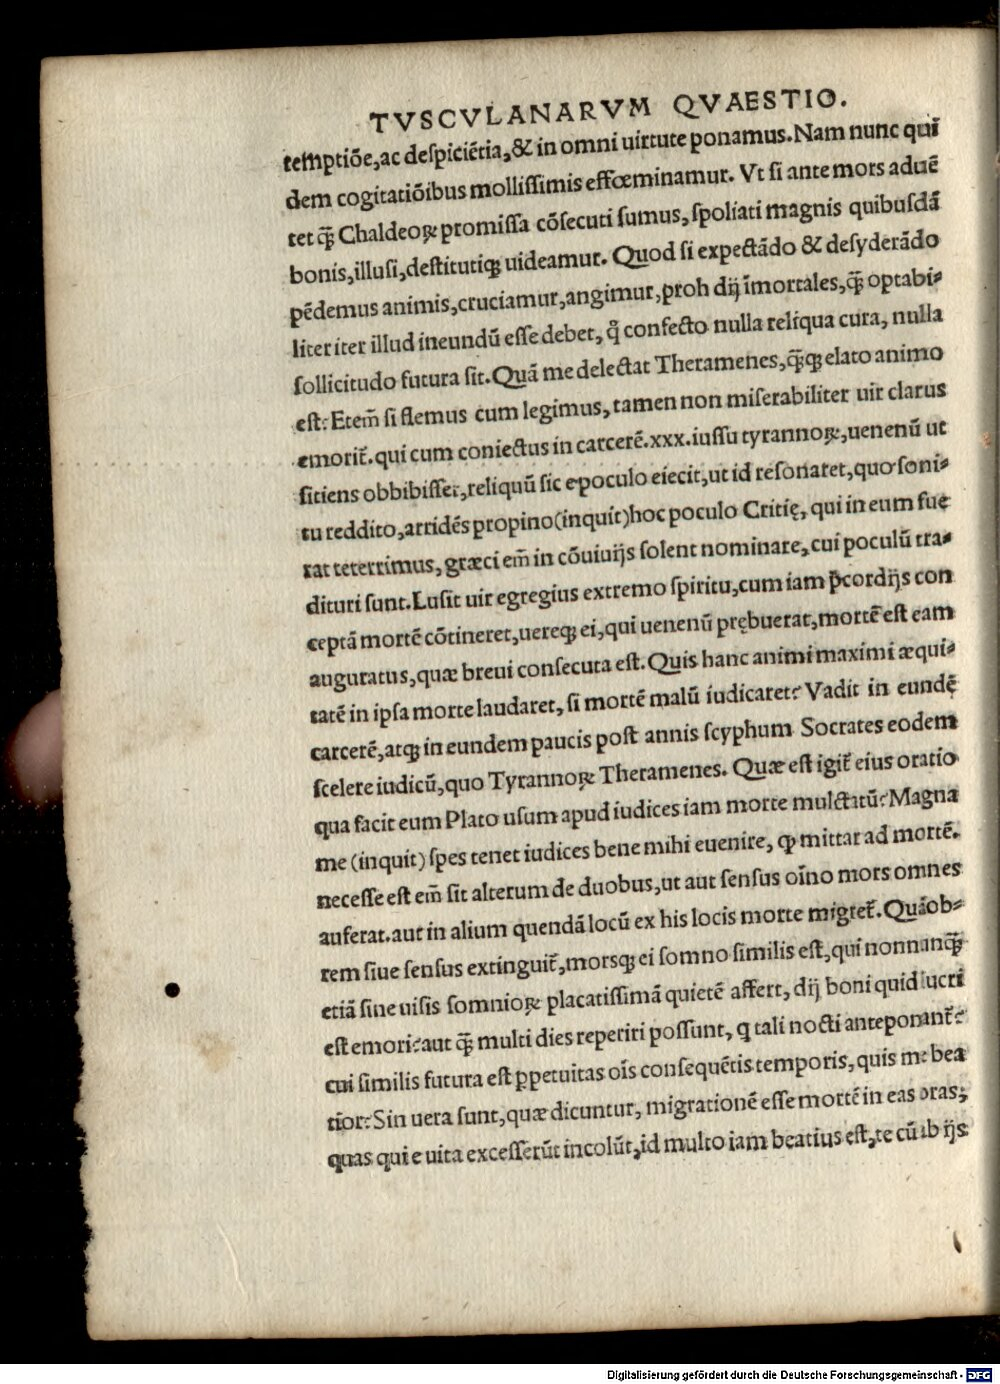 TVSCVLANARVM QVAESTIO.
temptiõe, ac despiciẽtia, & in omni uirtute ponamus. Nam nunc qui
dem cogitatiõibus mollissimis effœminamur. Vt si ante mors aduẽ
tet q̃ Chaldeoꝝ promissa cõsecuti sumus, spoliati magnis quibusdã
bonis, illusi, destitutiqꝫ uideamur. Quod si expectãdo & desyderãdo
pẽdemus animis, cruciamur, angimur, proh dij ĩmortales, q̃ optabi-
liter iter illud ineundũ esse debet, q̊ confecto nulla reliqua cura, nulla
sollicitudo futura sit. Quã me delectat Theramenes, q̃qꝫ elato animo
est? Etem̃ si flemus cum legimus, tamen non miserabiliter uir clarus
emorit̃. qui cum coniectus in carcerẽ. xxx. iussu tyrannoꝝ, uenenũ ut
sitiens obbibisset, reliquũ sic e poculo eiecit, ut id resonaret, quo soni-
tu reddito, arridẽs propino (inquit) hoc poculo Critię, qui in eum fue
rat teterrimus, græci em̃ in cõuiuijs solent nominare, cui poculũ tra-
dituri sunt. Lusit uir egregius extremo spiritu, cum iam p̃cordijs con
ceptã mortẽ cõtineret, uereqꝫ ei, qui uenenũ prębuerat, mortẽ est eam
auguratus, quæ breui consecuta est. Quis hanc animi maximi æqui-
tatẽ in ipsa morte laudaret, si mortẽ malũ iudicaret? Vadit in eundẽ
carcerẽ, atqꝫ in eundem paucis post annis scyphum Socrates eodem
scelere iudicũ, quo Tyrannoꝝ Theramenes. Quæ est igit̃ eius oratio
qua facit eum Plato usum apud iudices iam morte mulctatũ? Magna
me (inquit) spes tenet iudices bene mihi euenire, ꝙ mittar ad mortẽ.
necesse est em̃ sit alterum de duobus, ut aut sensus oĩno mors omnes
auferat. aut in alium quendã locũ ex his locis morte migret̃. Quãob-
rem siue sensus extinguit̃, morsqꝫ ei somno similis est, qui nonnunq̃
etiã sine uisis somnioꝝ placatissimã quietẽ affert, dij boni quid lucri
est emori? aut q̃ multi dies reperiri possunt, q tali nocti anteponant̃?
cui similis futura est ꝑpetuitas oĩs consequẽtis temporis, quis me bea
tĩor? Sin uera sunt, quæ dicuntur, migrationẽ esse mortẽ in eas oras,
quas qui e uita excesserũt incolũt, id multo iam beatius est, te cũ ab ijs
Digitalisierung gefördert durch die Deutsche Forschungsgemeinschaft - DFG